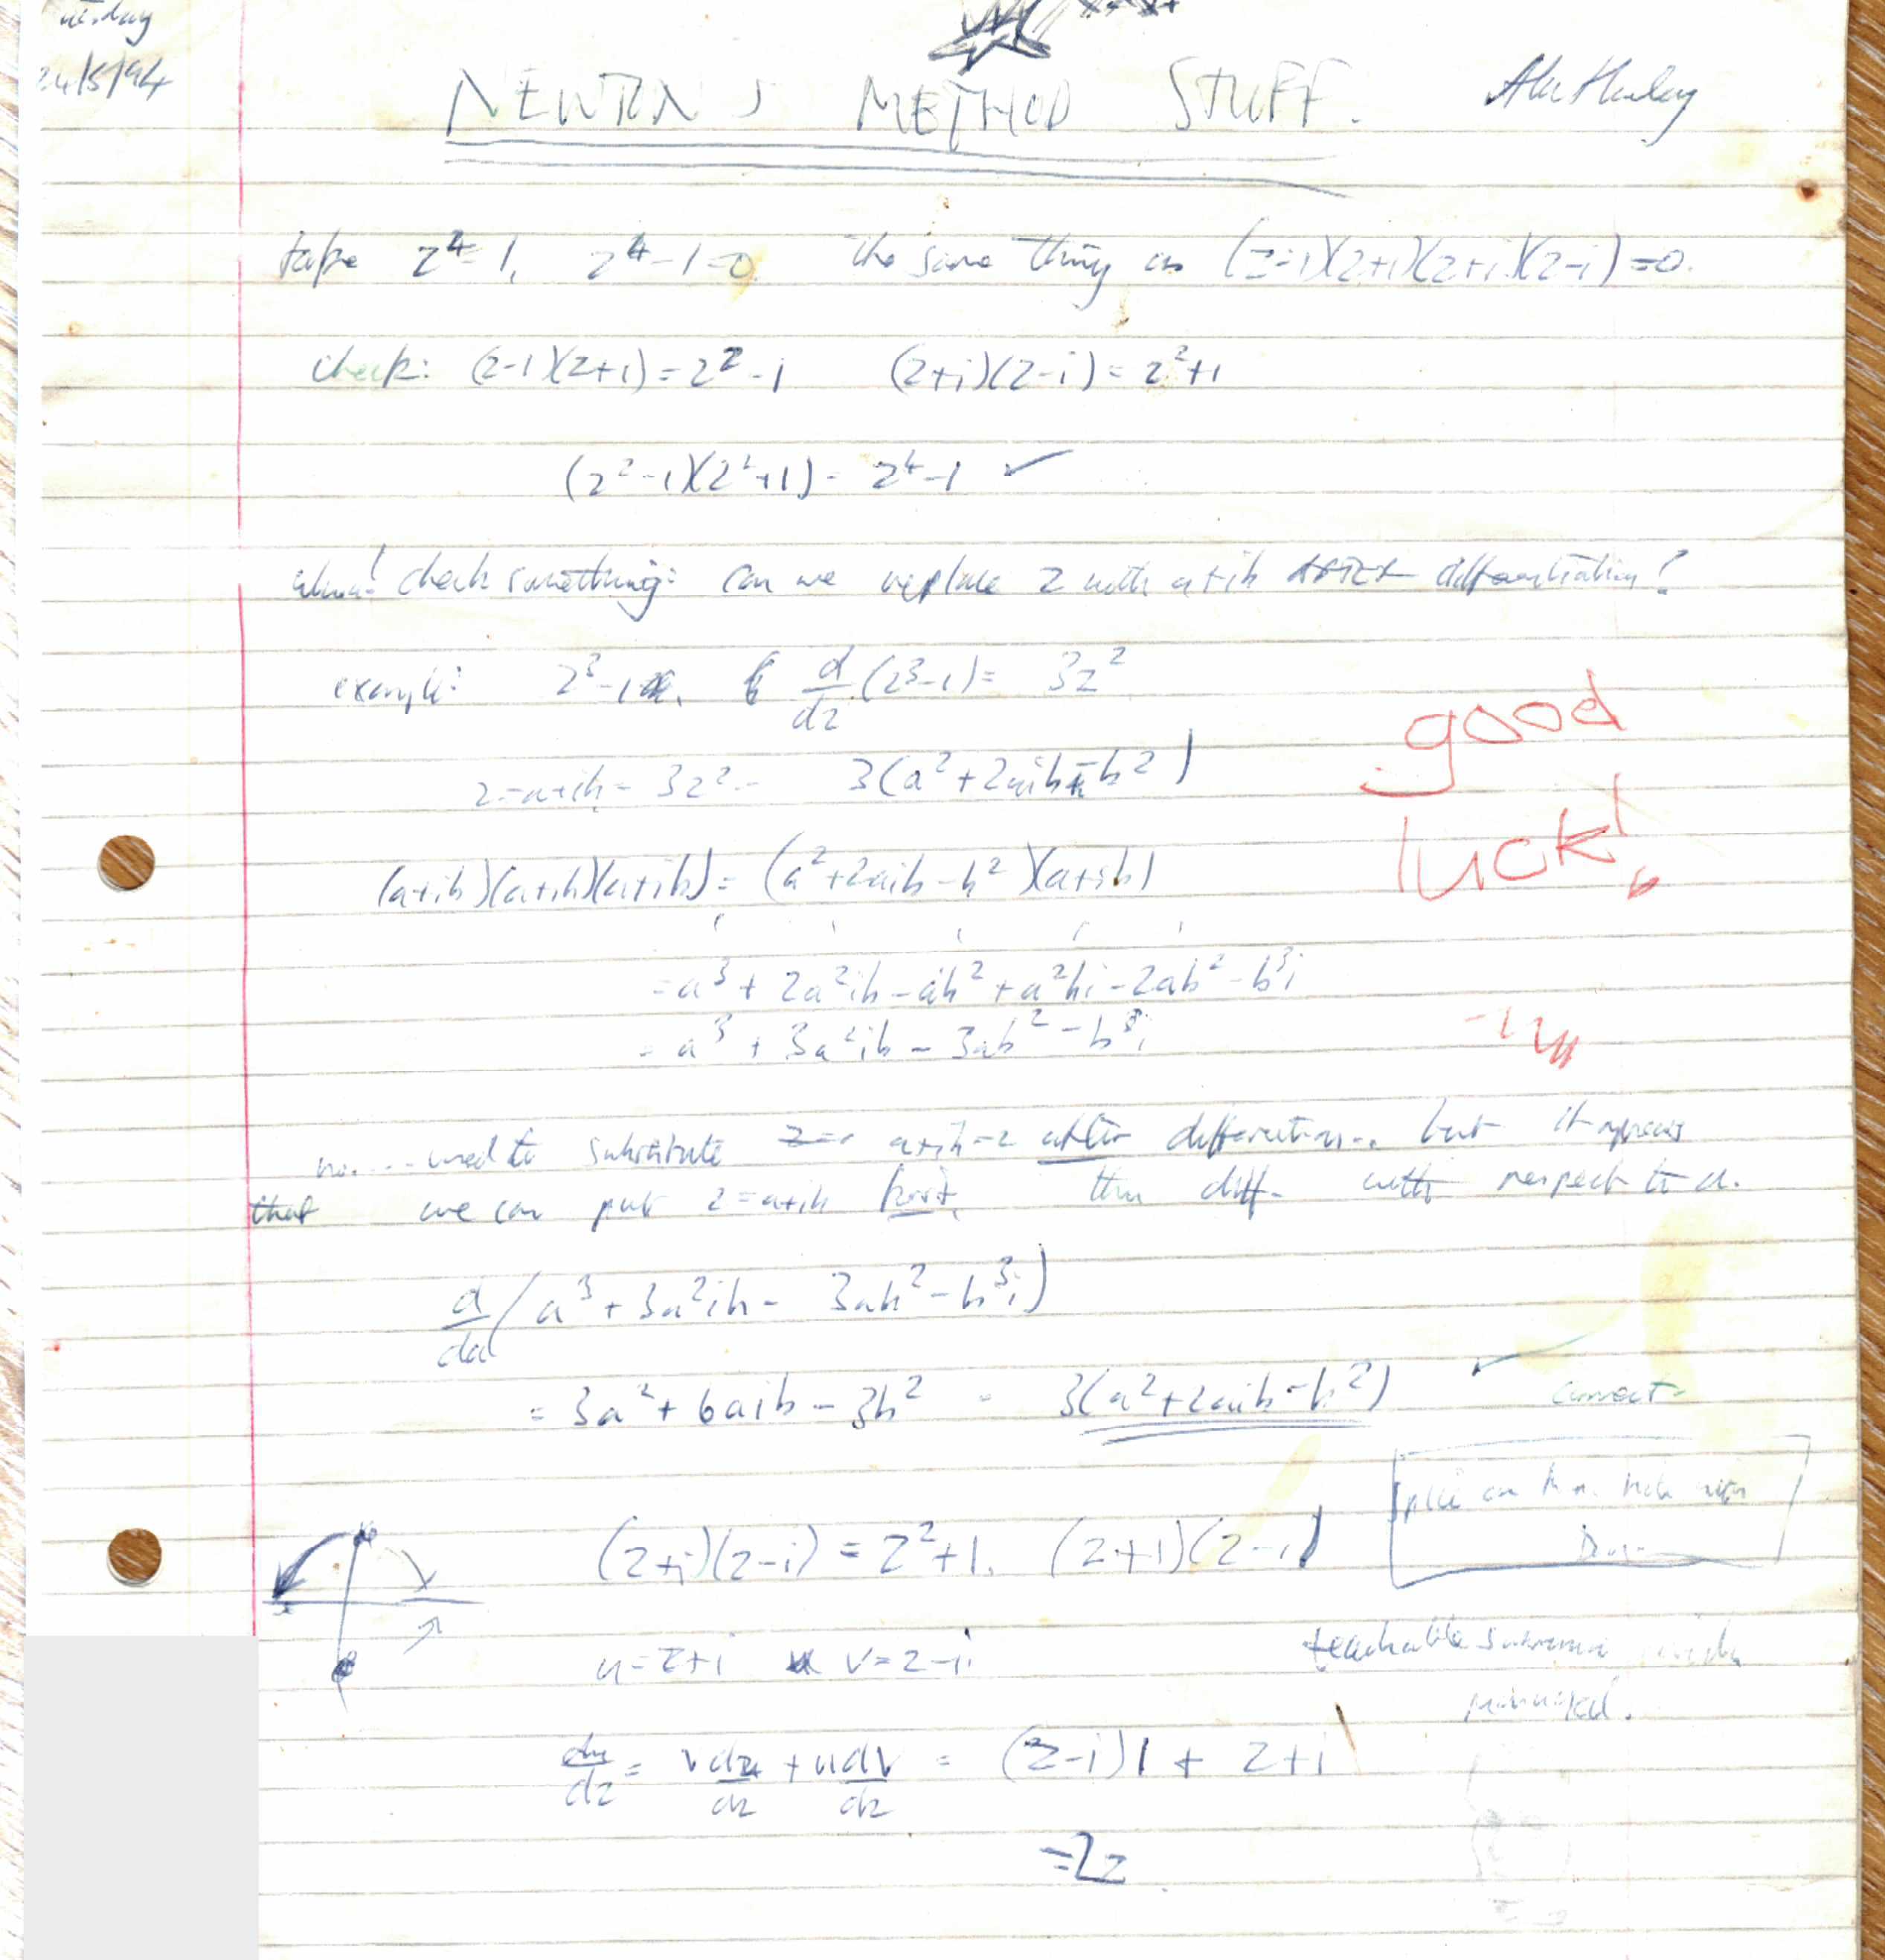 24/5/94
NEWTON'S METHOD STUFF.
take z⁴=1, z⁴-1=0. the same thing as (z-1)(z+1)(z+i)(z-i)=0.
check: (z-1)(z+1)=z²-1 (z+i)(z-i)=z²+1
(z²-1)(z²+1)= z⁴-1 ✓
check something: can we replace z with a+ib differentiation?
example: z³-1 d/dz (z³-1)= 3z²
z=a+ib= 3z²= 3(a²+2aib-b²)
good
luck!
(a+ib)(a+ib)(a+ib)=(a²+2aib-b²)(a+ib)
=a³+2a²ib-ab²+a²bi-2ab²-b³i
=a³+3a²ib-3ab²-b³i
no.... need to substitute a+ib=z after differentiation.. but it appears
that we can put z=a+ib first, then diff. with respect to a.
d/da (a³+3a²ib-3ab²-b³i)
=3a²+6aib-3b² = 3(a²+2aib-b²) ✓ correct-
(z+i)(z-i)=z²+1. (z+1)(z-1)
u=z+i v=z-i
teachable
dz = v du/dz + u dv/dz = (z-i)1 + z+i
=2z